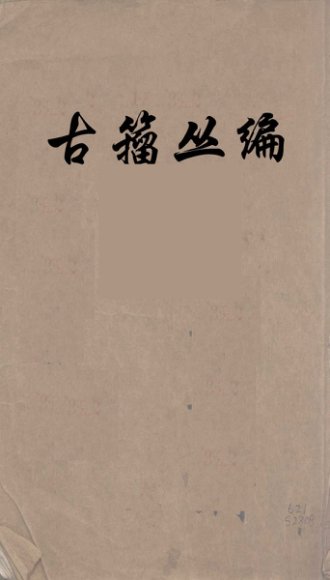 古籀丛编
621
52808